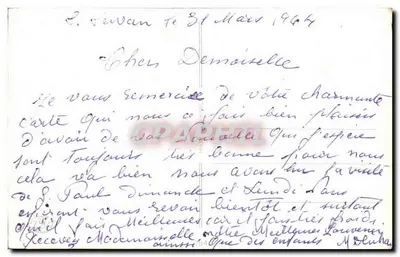 S. Servan le 31 Mars 1964
Chers Demoiselle
Je vous remercie de votre charmante
carte qui nous a fais bien plaisir
d'avoir de vos nouvelle que j'espere
sont toujours très bonne pour nous
cela va bien nous avons eu la visite
de S. Paul dimanche et Lundi dans
esperant vous revoir bientôt et surtout
qu'il fais Meilleures car il fais très froids
Recevez Mademoiselle notre Meilleures Souvenirs
ainssi que des enfants M